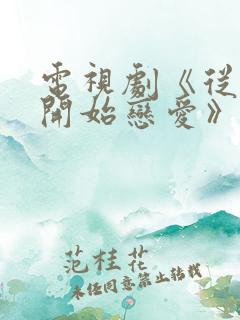 電視劇《從
開始戀愛》
范桂花
未經同意禁止轉載